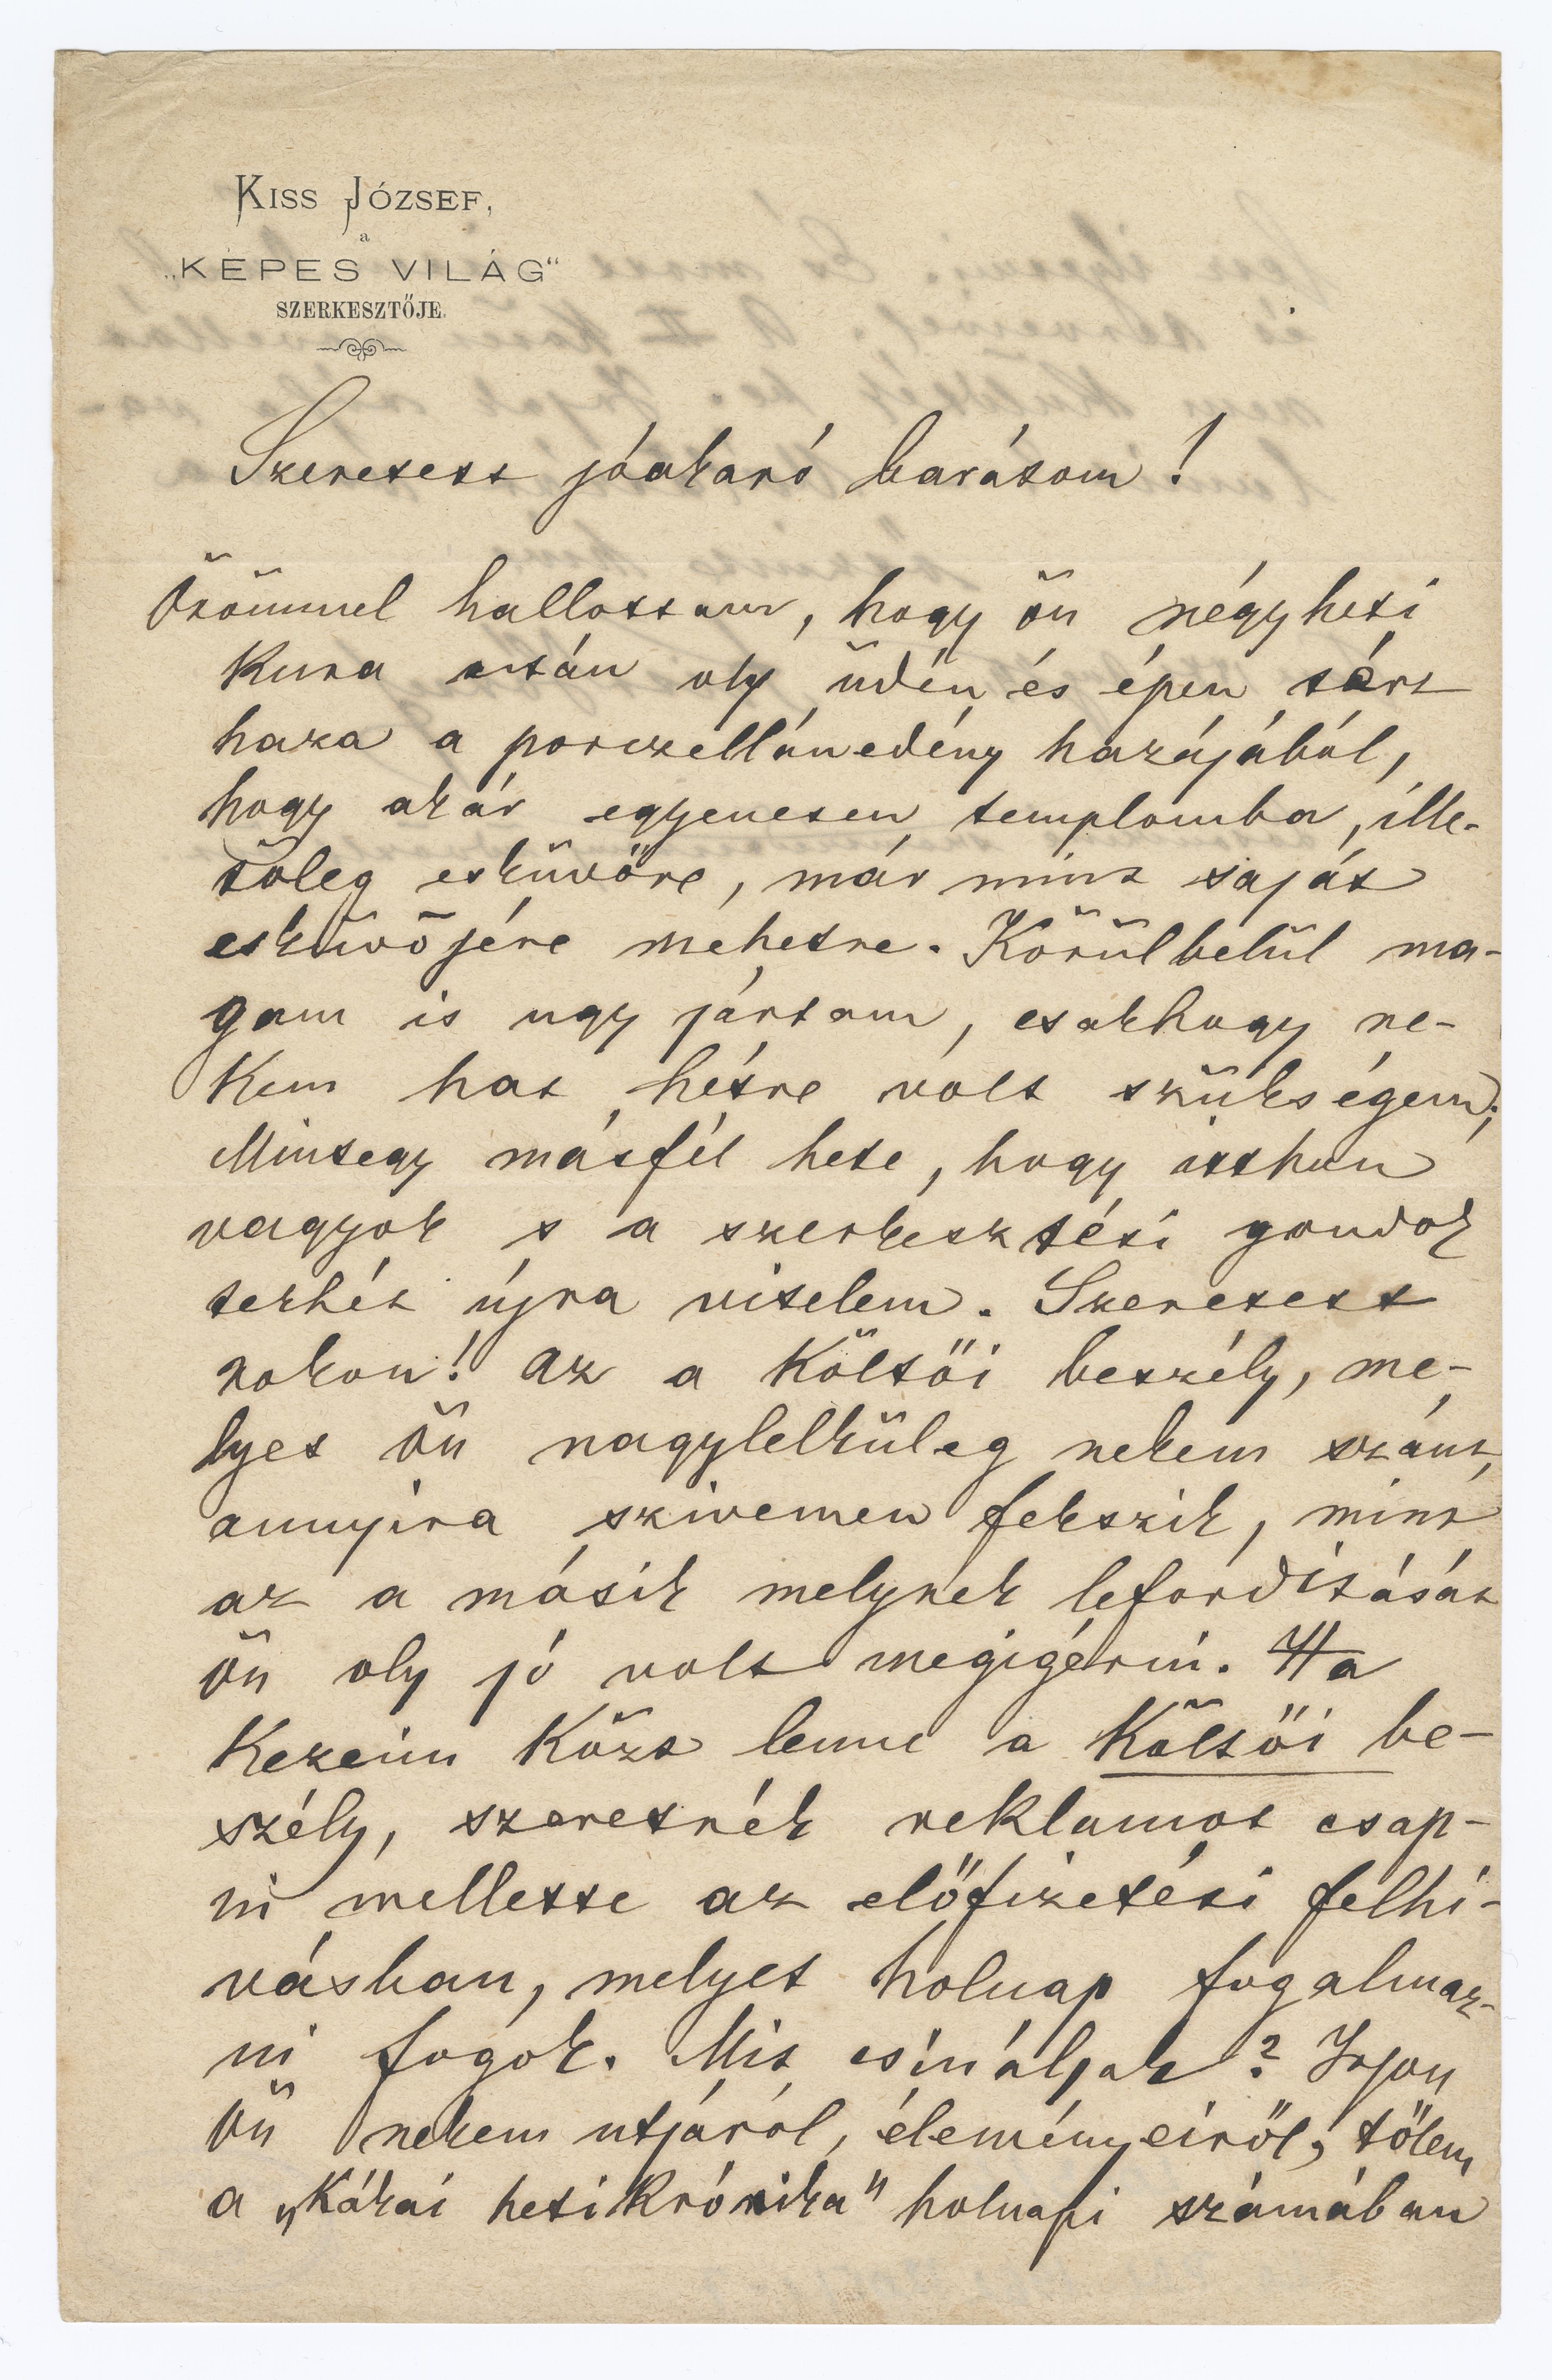 KISS JÓZSEF,
a
„KÉPES VILÁG“
SZERKESZTŐJE.
Szeretett jóakaró barátom!
Örömmel hallottam, hogy ön négyheti
kura után oly üdén és épen tért
haza a porczellánedény hazájából,
hogy akár egyenesen templomba, ille-
tőleg esküvőre, már mint saját
esküvőjére mehetne. Körülbelül ma-
gam is ugy jártam, csakhogy ne-
kem hat hétre volt szükségem;
Mintegy másfél hete, hogy itthon
vagyok s a szerkesztési gondok
terhét újra viselem. Szeretett
rokon! Az a költői beszély, me-
lyet ön nagylelküleg nekem szánt,
annyira szivemen fekszik, mint
az a másik melynek leforditását
ön oly jó volt megigérni. Ha
kezeim közt lenne a költői be-
szély, szeretnék reklamot csap-
ni mellette az előfizetési felhi-
vásban, melyet holnap fogalmaz-
ni fogok. Mit csináljak? Irjon
ön nekem utjáról, élményeiről, tőlem
a „Kákai heti Krónika" holnapi számában